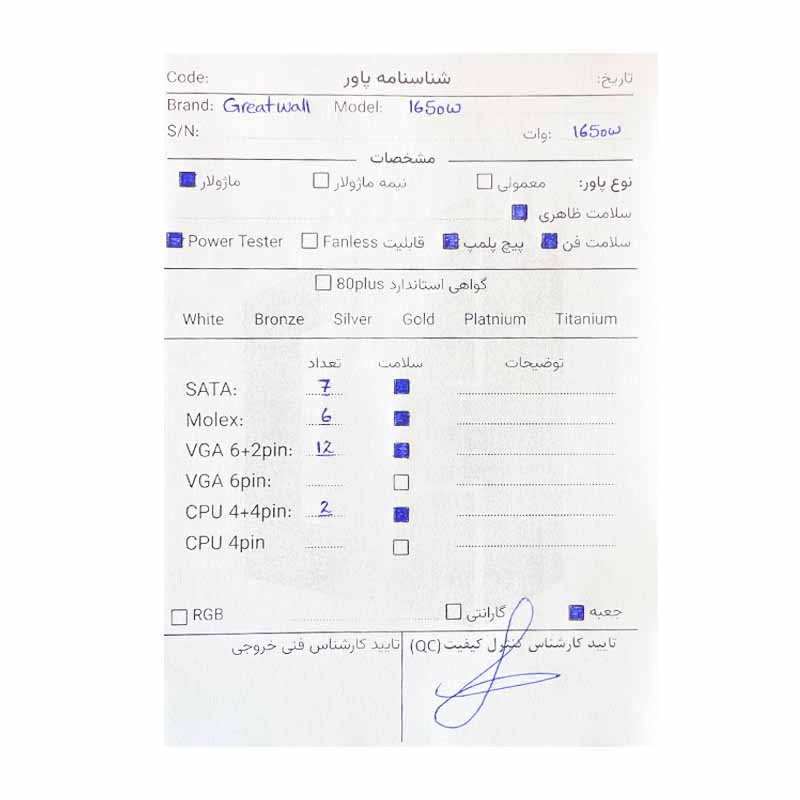 Code: شناسنامه پاور تاریخ:
Brand: Greatwall Model: 1650w
S/N: وات: 1650w
مشخصات
نوع پاور: معمولی نیمه ماژولار ماژولار
سلامت ظاهری
سلامت فن پیچ پلمپ قابلیت Fanless Power Tester
گواهی استاندارد 80plus
White Bronze Silver Gold Platnium Titanium
تعداد سلامت توضیحات
SATA: 7
Molex: 6
VGA 6+2pin: 12
VGA 6pin:
CPU 4+4pin: 2
CPU 4pin
جعبه گارانتی RGB
تایید کارشناس کنترل کیفیت (QC) تایید کارشناس فنی خروجی